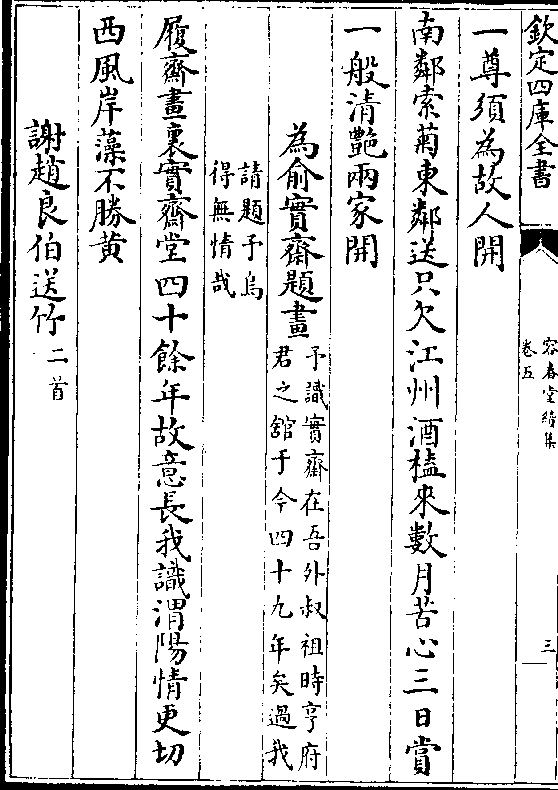 欽定四庫全書
容春堂續集
卷五
三
一尊須為故人開
南鄰索菊東鄰送只欠江州酒榼來數月苦心三日賞
一般清艷兩家開
為俞實齋題畫
予識實齋在吾外叔祖時亨府
君之舘于今四十九年矣過我
請題予烏
得無情哉
履齋畫裏實齋堂四十餘年故意長我識渭陽情更切
西風岸藻不勝黄
謝趙良伯送竹二首